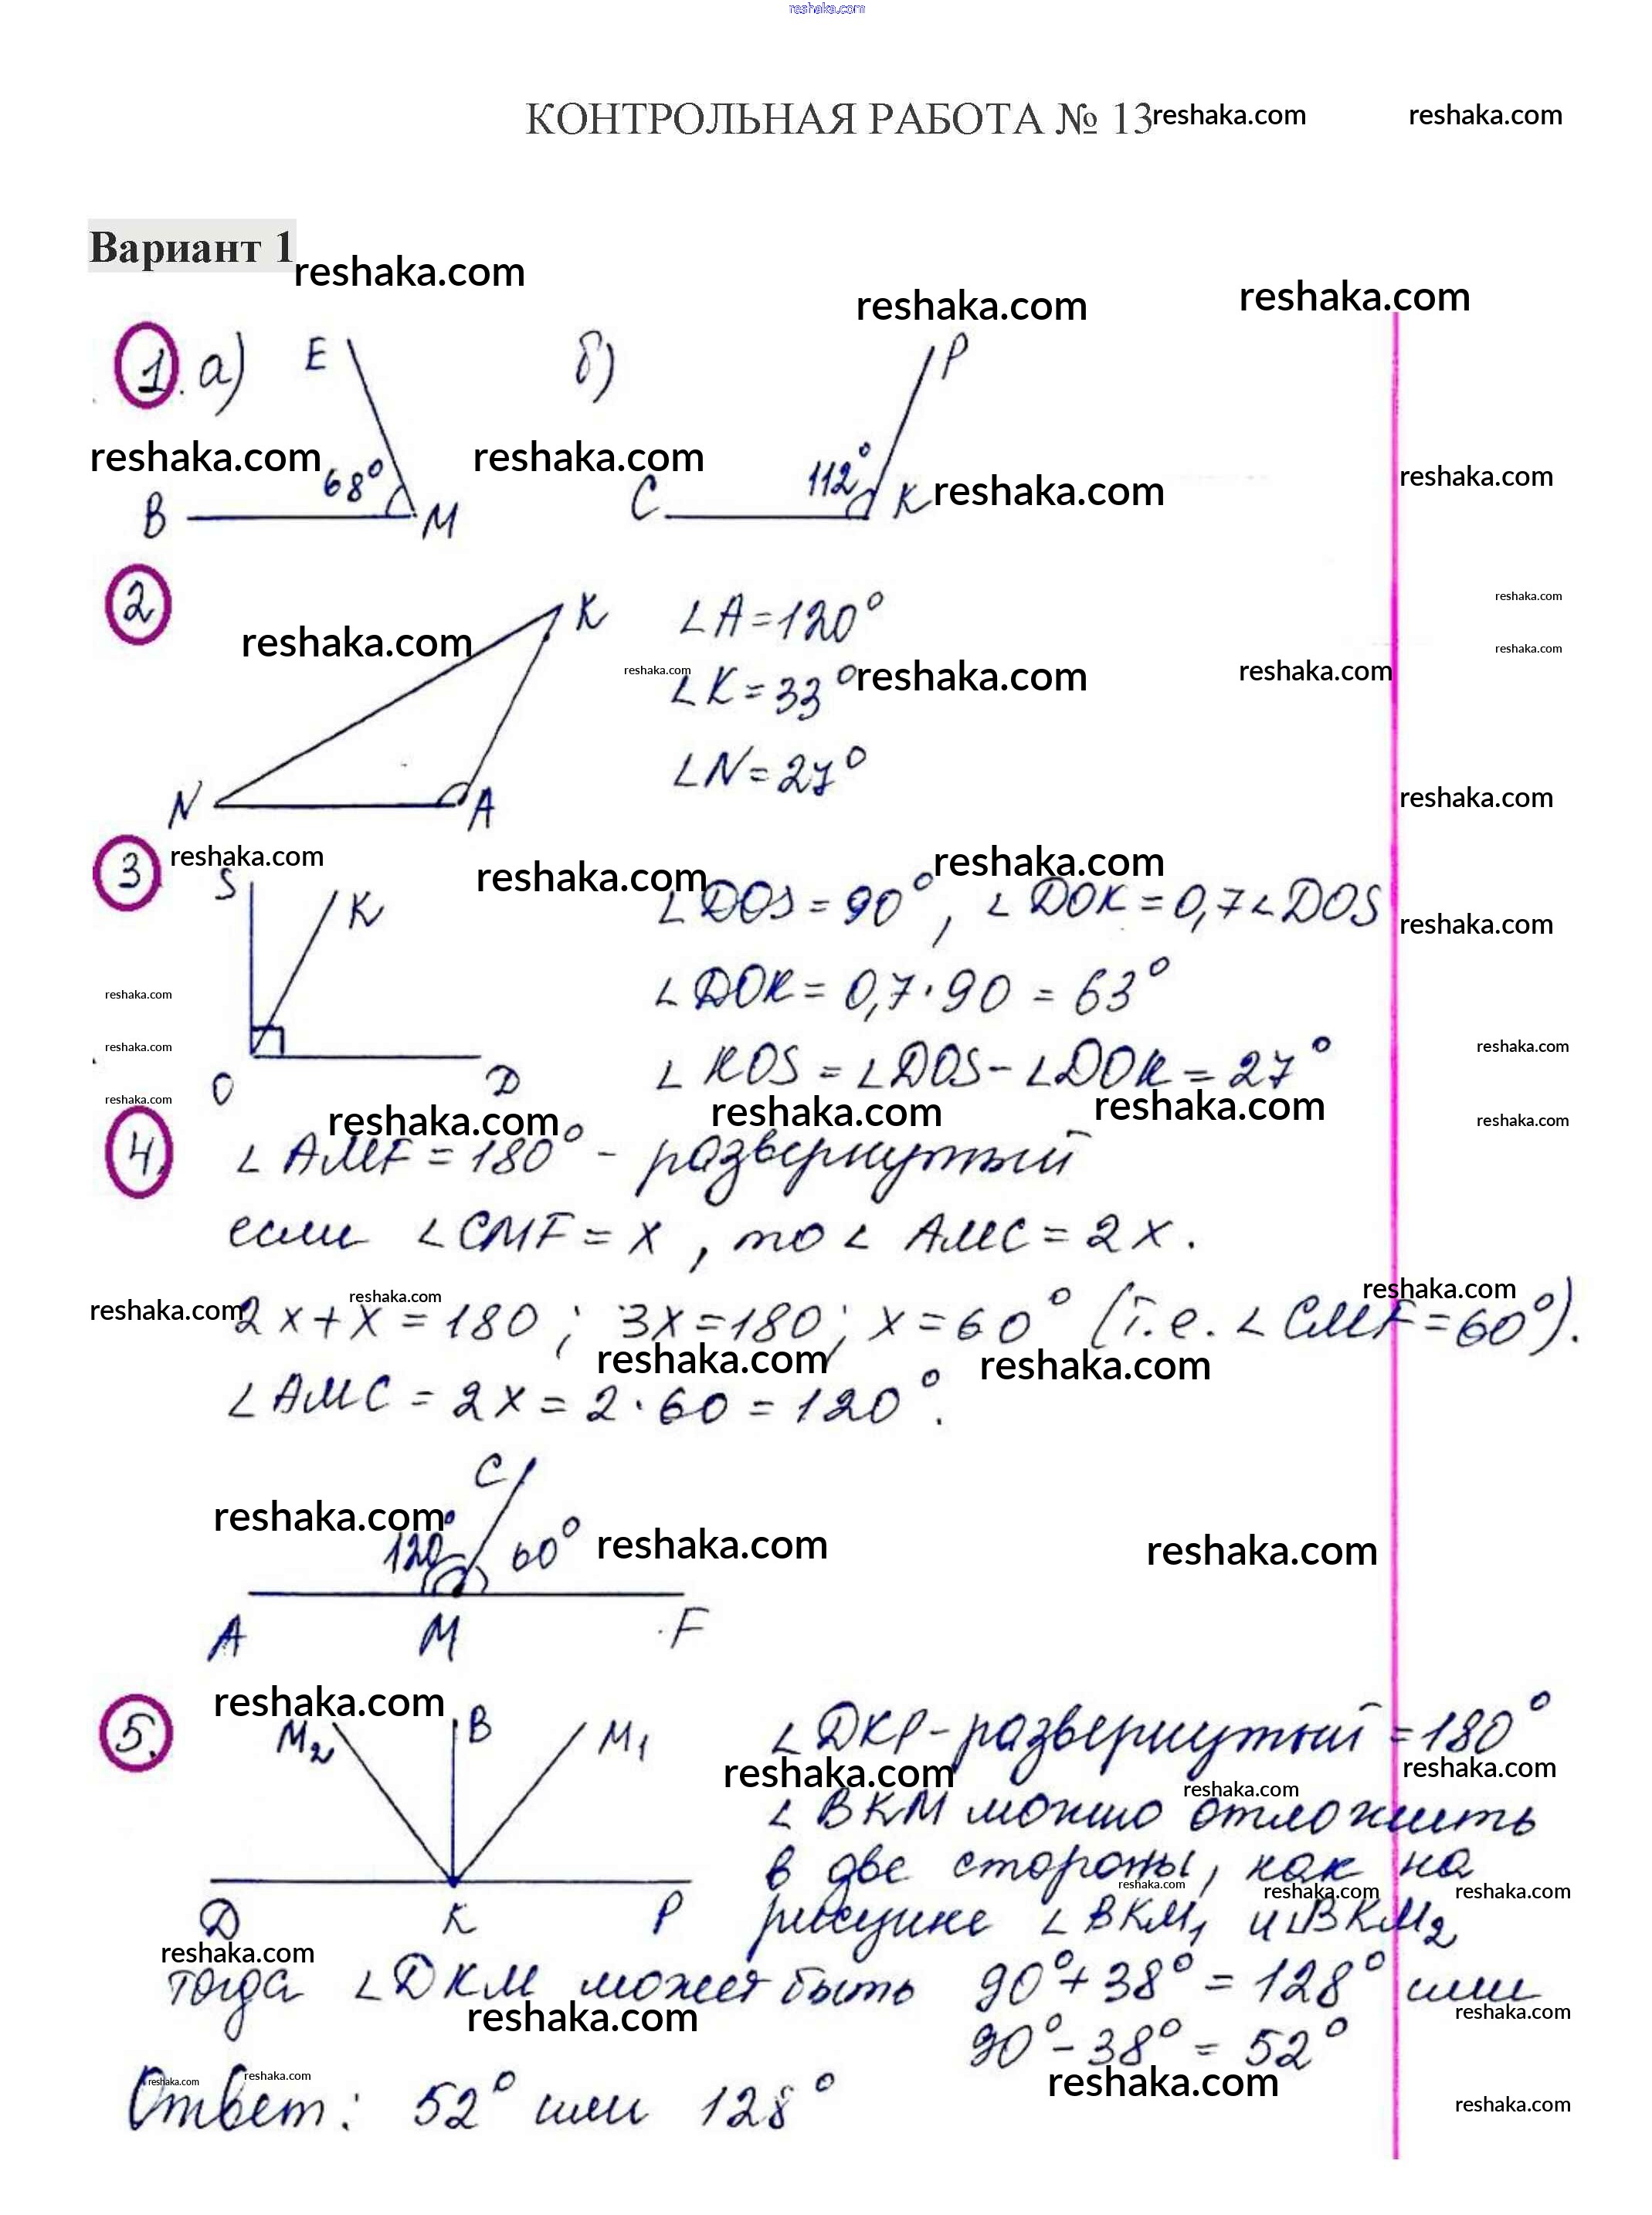 reshaka.com
КОНТРОЛЬНАЯ РАБОТА № 13 reshaka.com reshaka.com
Вариант 1 reshaka.com
reshaka.com reshaka.com
1. а) E б) P
reshaka.com 68° reshaka.com 112° reshaka.com reshaka.com
B M C K
2 K ∠A=120° reshaka.com
reshaka.com reshaka.com
reshaka.com ∠K=33° reshaka.com reshaka.com
∠N=27°
N A reshaka.com
3 reshaka.com reshaka.com reshaka.com
S K ∠DOS=90°, ∠DOK=0,7∠DOS reshaka.com
reshaka.com ∠DOK=0,7·90=63°
reshaka.com ∠KOS=∠DOS-∠DOK=27° reshaka.com
reshaka.com O D
reshaka.com reshaka.com reshaka.com reshaka.com
4. ∠AMF=180° - развернутый
если ∠CMF=x, то ∠AMC=2x.
reshaka.com reshaka.com reshaka.com
2x+x=180; 3x=180; x=60° (т.е. ∠CMF=60°).
reshaka.com reshaka.com
∠AMC=2x=2·60=120°.
C
reshaka.com reshaka.com reshaka.com
120° 60°
A M F
reshaka.com
5. M2 B M1 ∠DKP-развернутый=180°
reshaka.com reshaka.com reshaka.com
∠BKM можно отложить
в две стороны, как на
reshaka.com reshaka.com reshaka.com
D K P рисунке ∠BKM1 и ∠BKM2
reshaka.com
тогда ∠DKM может быть 90°+38°=128° или
reshaka.com reshaka.com
90°-38°=52°
reshaka.com reshaka.com reshaka.com
Ответ: 52° или 128° reshaka.com